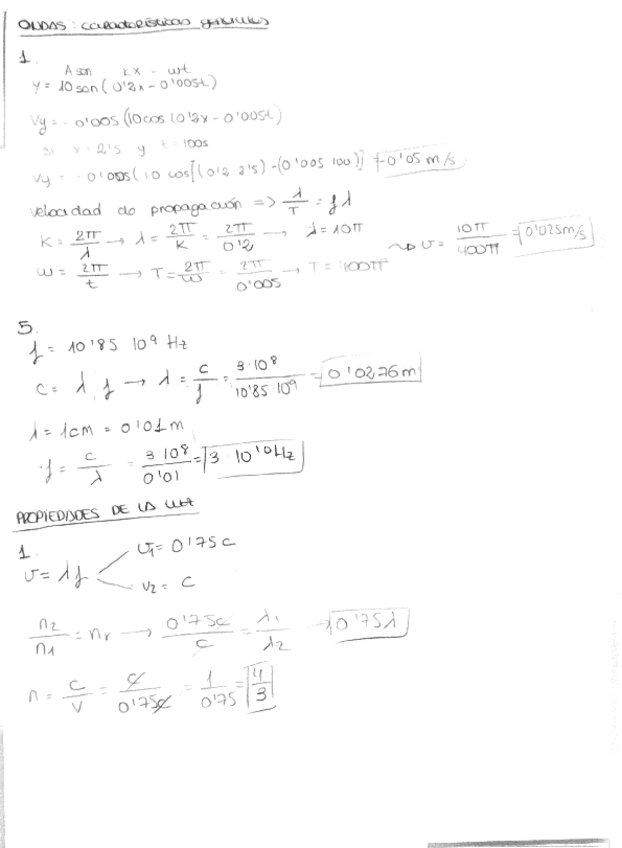 ONDAS: características generales
1.
A sen kx - wt
y = 10 sen (0'2x - 0'005t)
Vy = - 0'005 (10 cos (0'2x - 0'005t)
si x = 2'5 y t = 100s
Vy = - 0'005 (10 cos[(0'2 · 2'5) - (0'005 · 100)] = -0'05 m/s
velocidad de propagación => λ/T = f λ
K = 2π/λ → λ = 2π/K = 2π/0'2 → λ = 10π
w = 2π/t → T = 2π/w = 2π/0'005 → T = 400π
v = 10π/400π = 0'025 m/s
5.
f = 10'85 10⁹ Hz
c = λ f → λ = c/f = 3·10⁸/10'85·10⁹ = 0'0276 m
λ = 1cm = 0'01m
f = c/λ = 3·10⁸/0'01 = 3·10¹⁰ Hz
PROPIEDADES DE LA LUZ
1.
v = λ f
v₁ = 0'75 c
v₂ = c
n₂/n₁ = nr → 0'75c/c = λ₁/λ₂ → 0'75λ
n = c/v = c/0'75c = 1/0'75 = 4/3